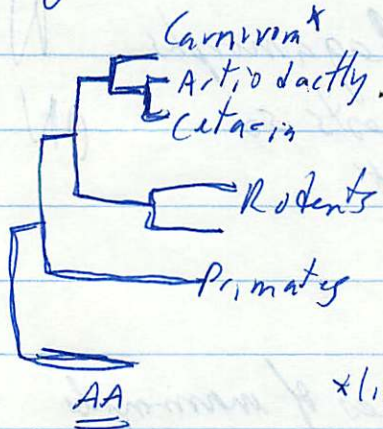 Carnivora*
Artiodactly.
Cetacia
Rodents
Primates
AA